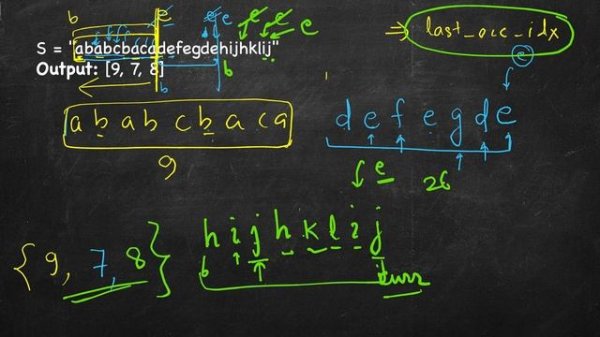 b e e e e e e
S = "ababcbacadefegdehijhklij"
Output: [9, 7, 8]
b b
=> last_occ_idx
e
a b a b c b a c a
9
d e f e g d e
e
26
h i j h k l i j
b curr
{9, 7, 8}